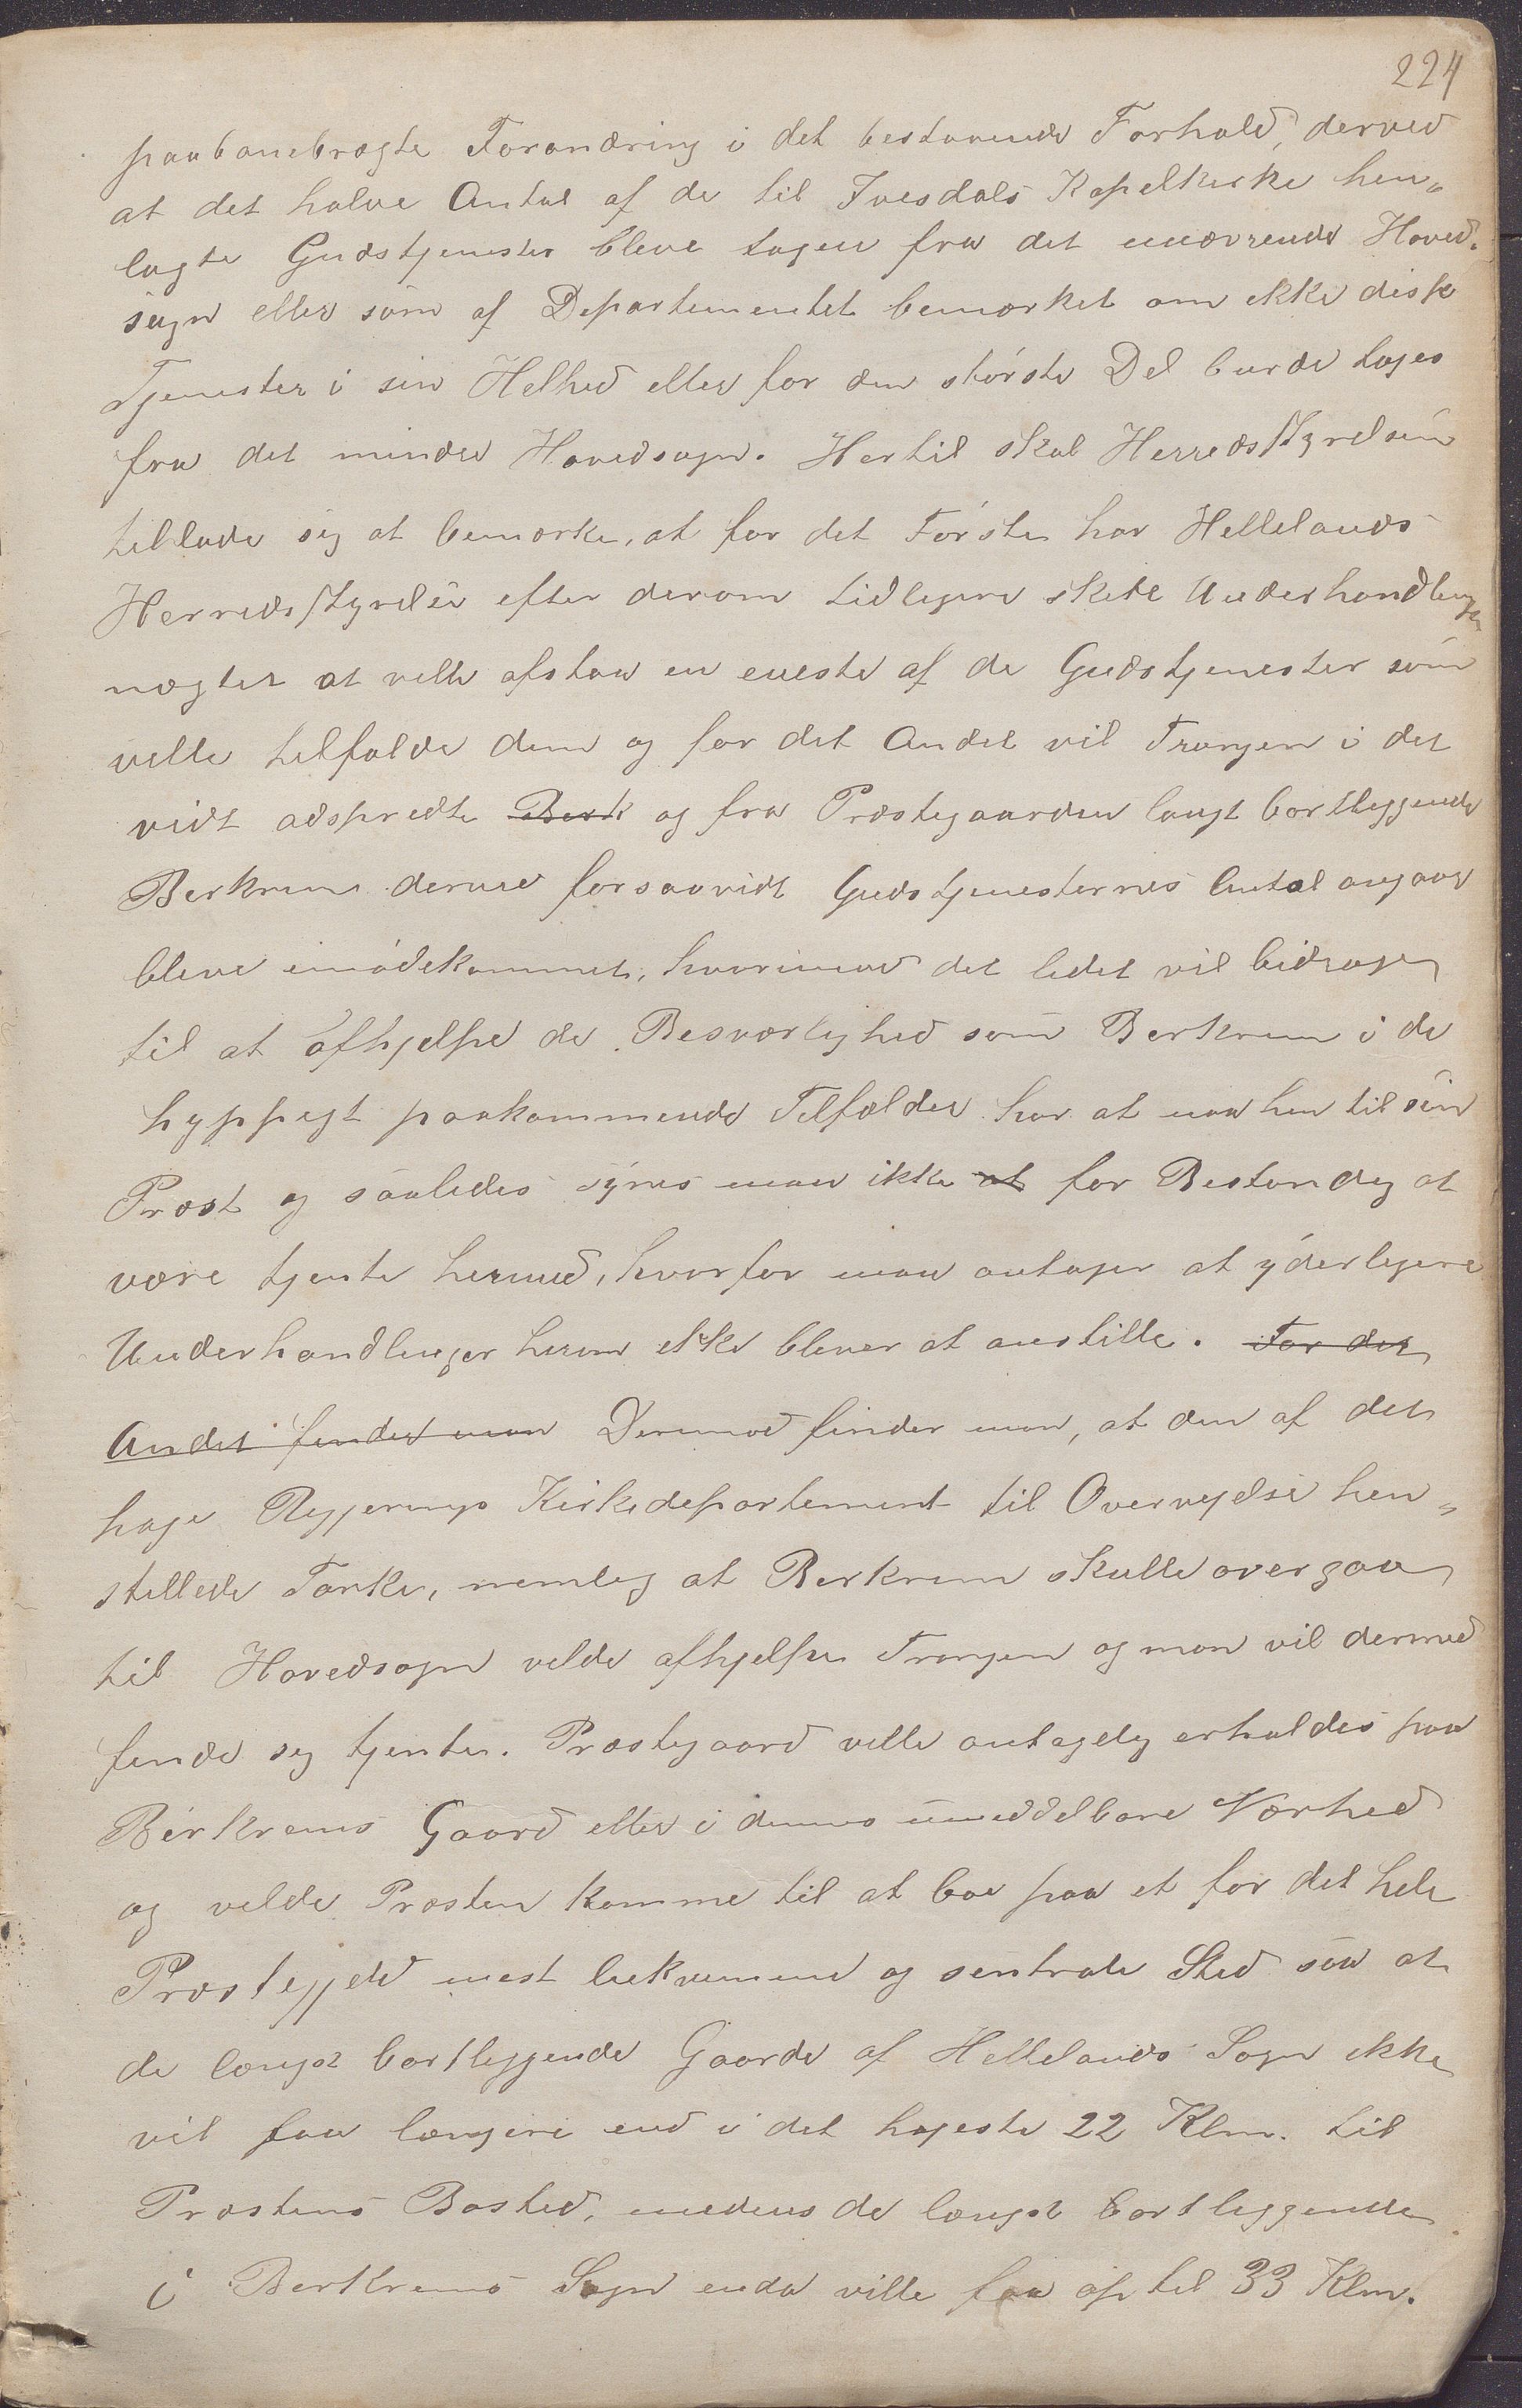 224
paabanebragte Forandring i det bestaaende Forhold, derved
at det halve Antal af de til Ivesdals Kapelkirke hen„
lagte Gudstjenester bleve tagen fra det nuværende Hoved„
sogn eller som af Departementet bemærket om ikke disse
Tjenester i sin Helhed eller for den störste Del burde tages
fra det mindre Hovedsogn. Hertil skal Herredsstyrelsen
tillade sig at bemærke, at for det Förste har Hellelands
Herredsstyrelse efter derom tidligere skete Underhandlinger
nægtet at ville afstaa en eneste af de Gudstjenester som
ville tilfalde dem og for det Andet vil Trangen i det
vidt adspredte Berk og fra Præstegaarden langt bortliggende
Berkrem derved forsaavidt Gudstjenesternes Antal angaar
bleve imödekommet, hvorimod det lidet vil bidrage
til at afhjelpe de Besværlighed som Berkrem i de
hyppigt paakommende Tilfælder har at naa hen til sin
Præst og saaledes synes man ikke at for Bestandig at
være tjente hermed, hvorfor man antager at yderligere
Underhandlinger herom ikke bliver at anstille. For det
Andet finder man Derimod finder man, at den af det
høje Regjerings Kirkedepartement til Overveielse hen„
stillede Tanke, nemlig at Berkrem skulle overgaa
til Hovedsogn vilde afhjelpe Trangen og man vil dermed
finde sig tjente. Præstegaard ville antagelig erholdes paa
Birkrems Gaard eller i dennes umiddelbare Nærhed
og vilde Præsten komme til at boe paa et for det hele
Præstegjeld mest bekvemme og sentrale Sted saa at
de længst bortliggende Gaarde af Hellelands Sogn ikke
vil faa længere end i det højeste 22 Klm. til
Præstens Bosted, medens de længst bortliggende
i Berkrems Sogn enda ville faa op til 33 Klm.